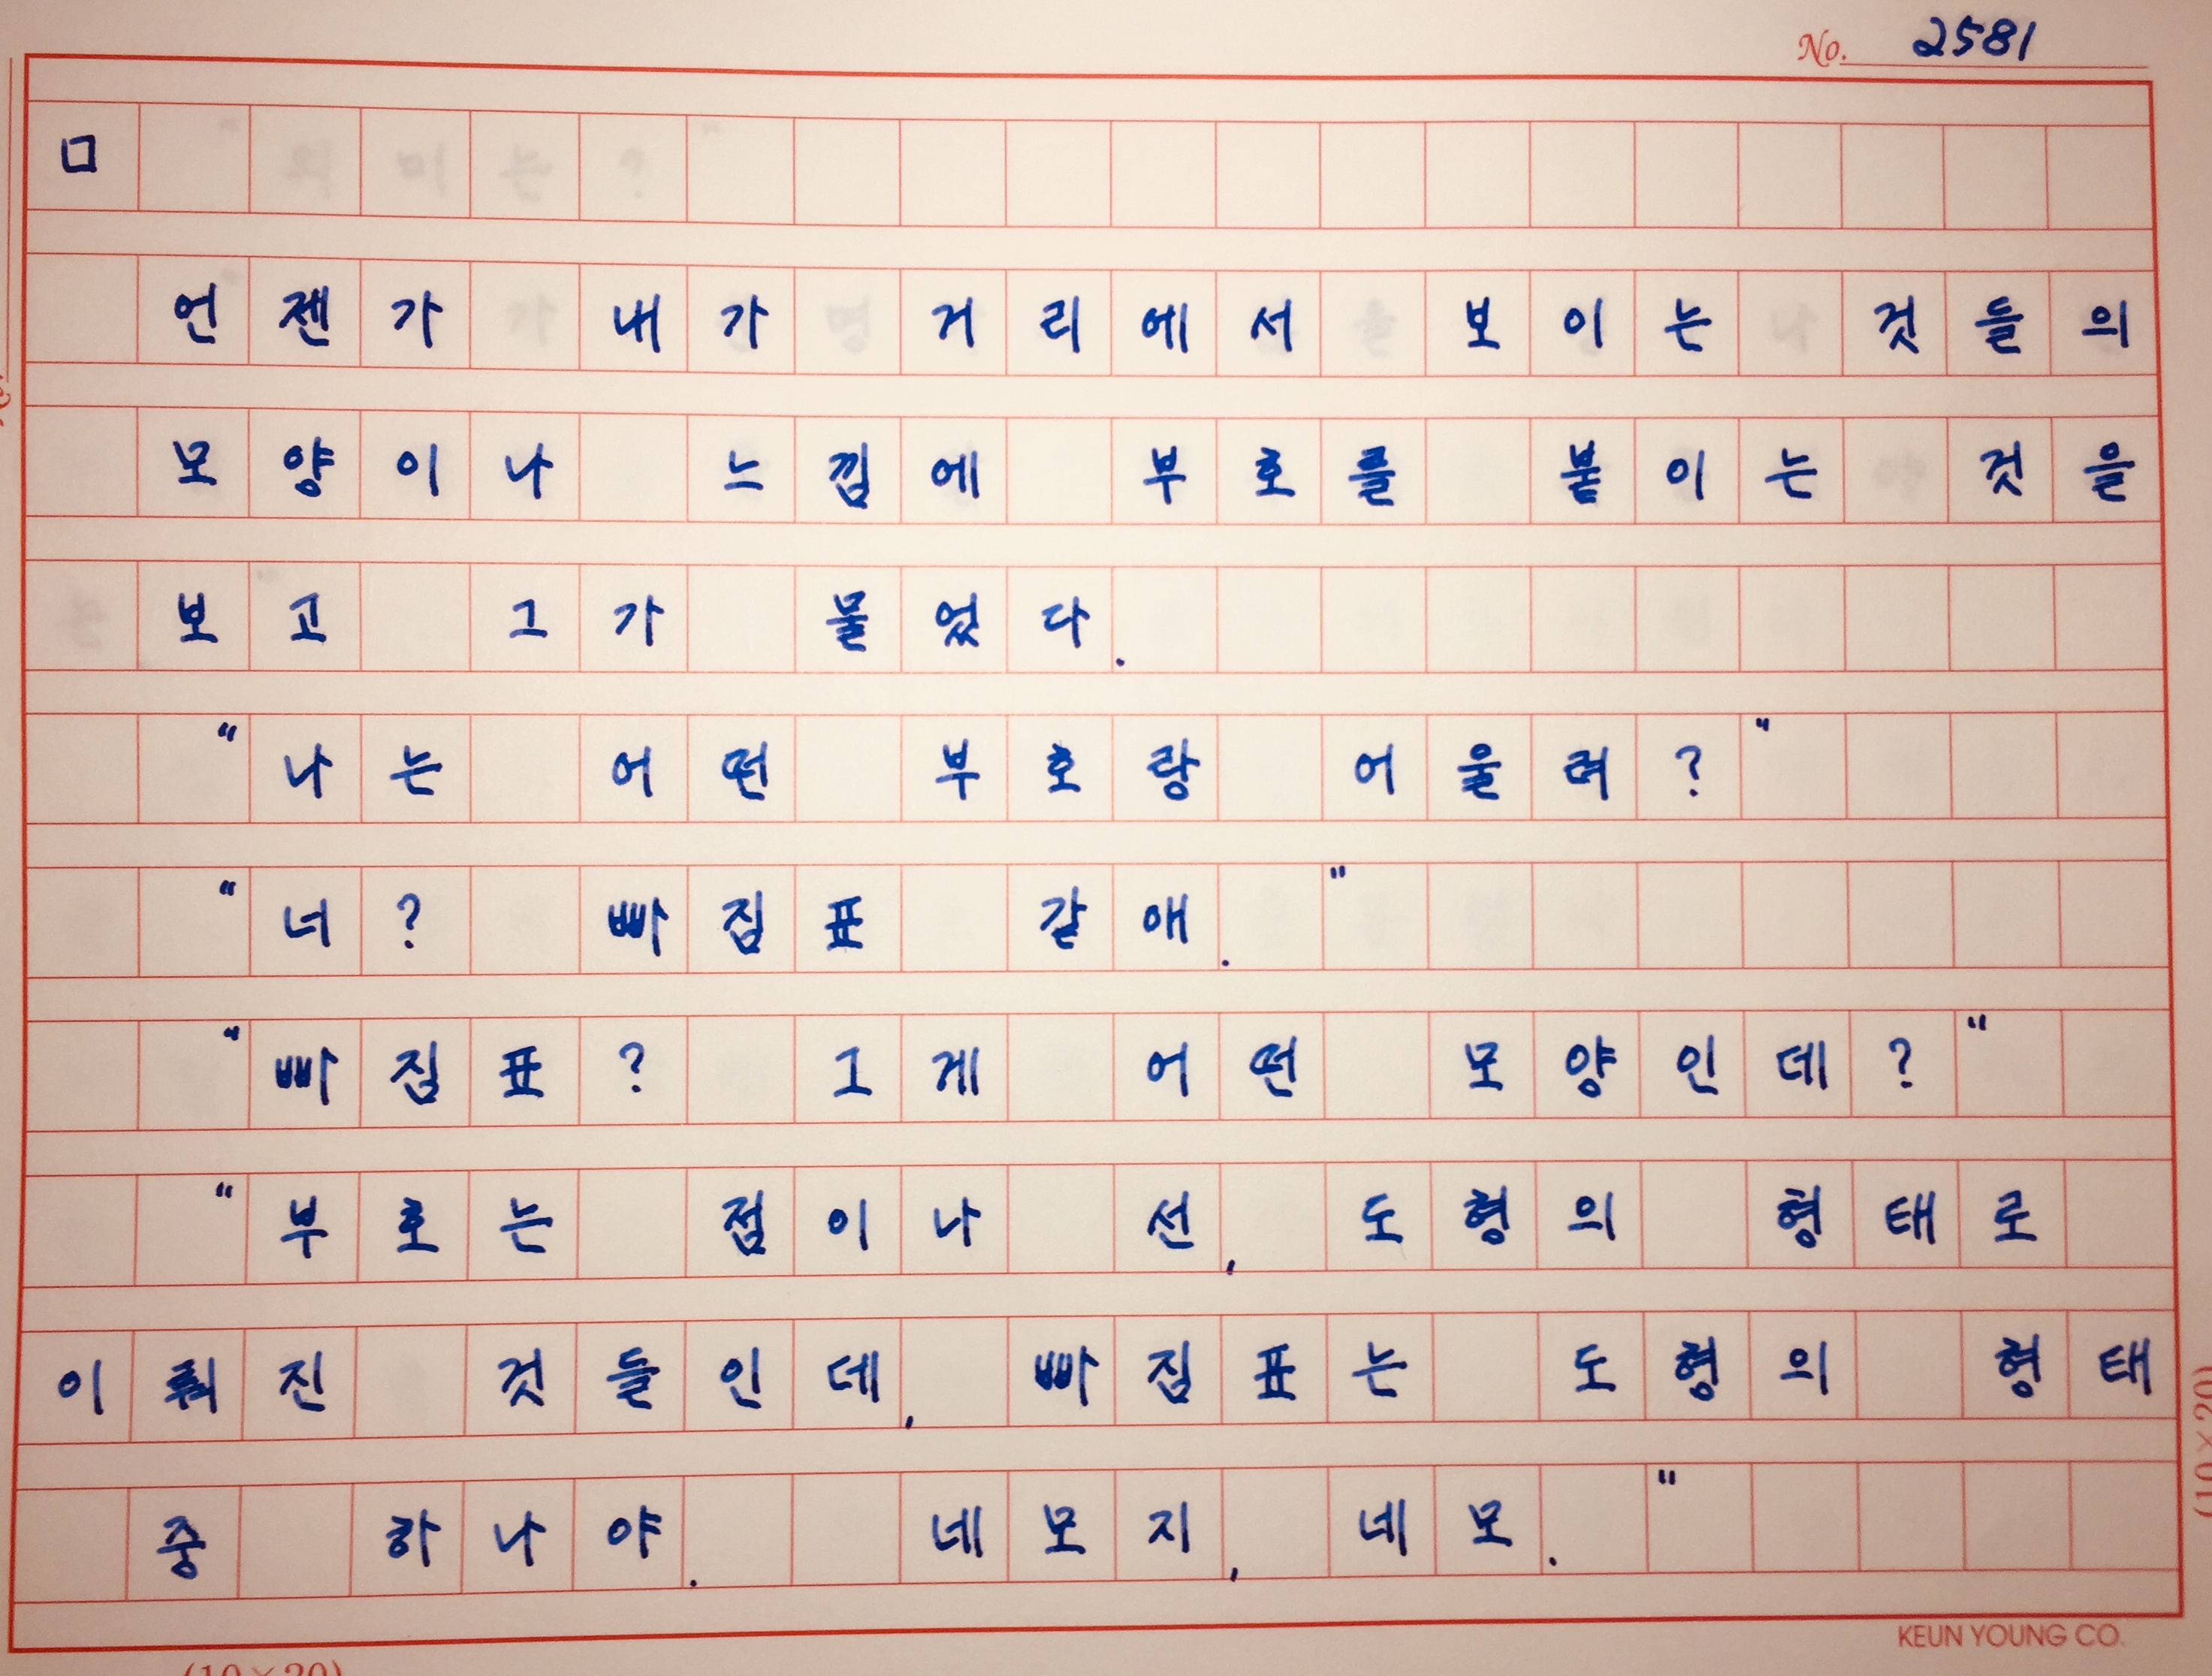 No. 2581
□
언젠가 내가 거리에서 보이는 것들의
모양이나 느낌에 부호를 붙이는 것을
보고 그가 물었다.
"나는 어떤 부호랑 어울려?"
"너? 빠짐표 같애."
"빠짐표? 그게 어떤 모양인데?"
"부호는 점이나 선, 도형의 형태로
이뤄진 것들인데, 빠짐표는 도형의 형태
중 하나야. 네모지, 네모."
KEUN YOUNG CO.
(10×20)
(10×20)